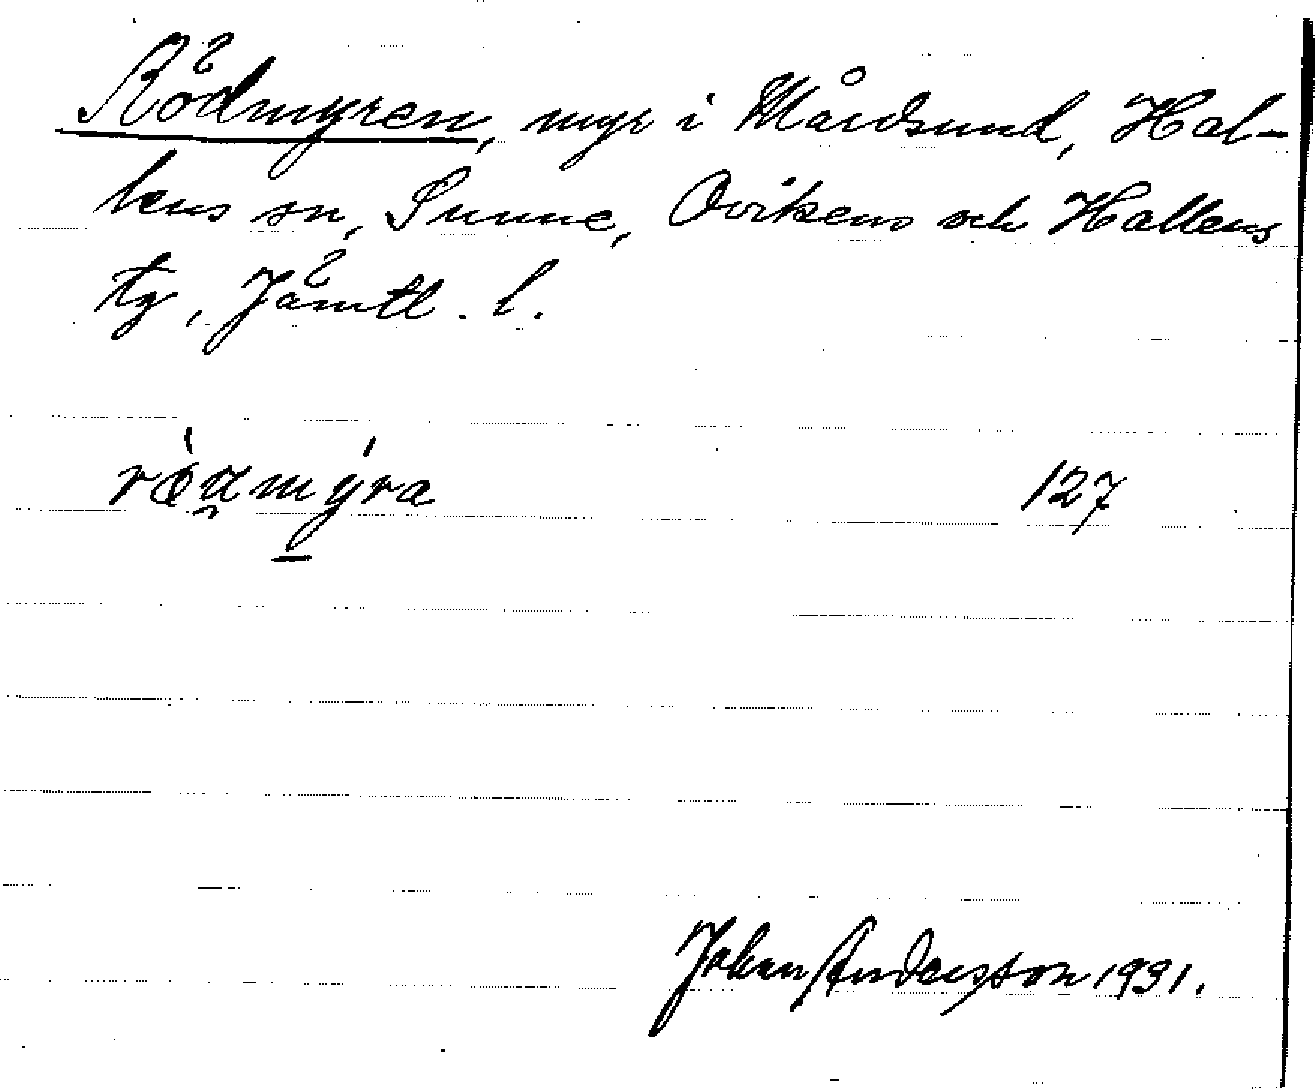 Rödmyren, myr i Mårdsund, Hal-
lens sn, Sunne, Ovikens och Hallens
tg, Jämtl. l.
127
Johan Andersson 1931.